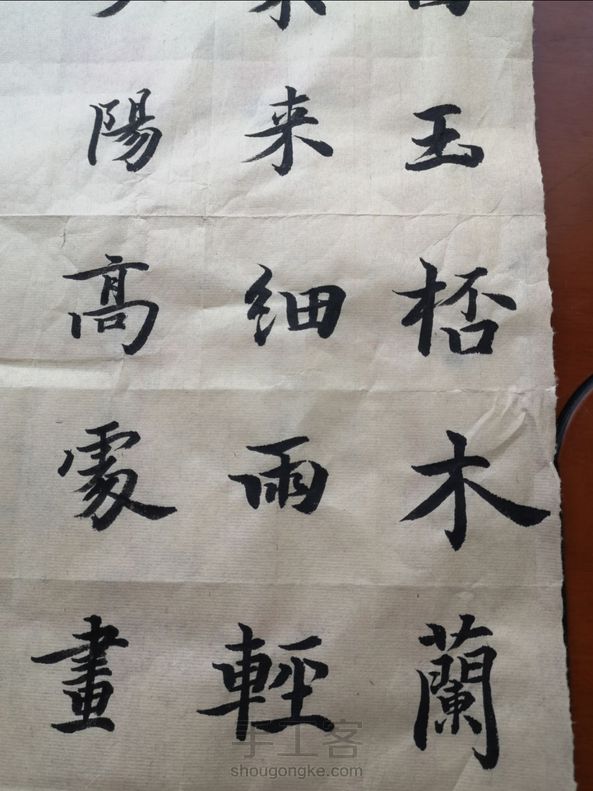 玉桮木蘭
来細雨輕
陽高處畫
手工客
shougongke.com